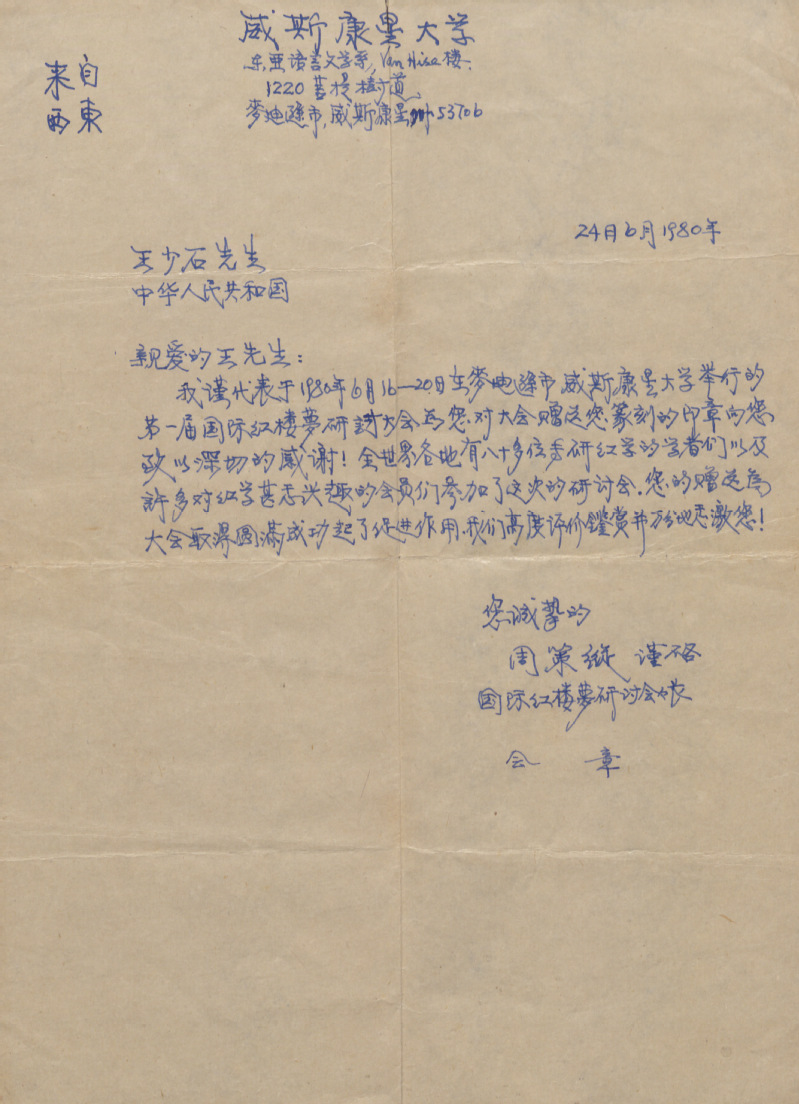 威斯康星大学
东亚语言文学系, Van Hise 楼.
1220 菩提树道
麥迪遜市, 威斯康星州 53706
来自
西東
24日6月1980年
王少石先生
中华人民共和国
亲爱的王先生:
我谨代表于1980年6月16—20日在麥迪遜市威斯康星大学举行的
第一届国际红楼夢研討大会为您对大会赠送您篆刻的印章向您
致以深切的感谢! 全世界各地有八十多位专研红学的学者们以及
許多对红学甚感兴趣的会员们参加了这次的研讨会. 您的赠送為
大会取得圆滿成功起了促进作用. 我们高度评价鑑赏并万分地感激您!
您诚挚的
周策纵 谨启
国际红楼夢研讨会会长
会 章